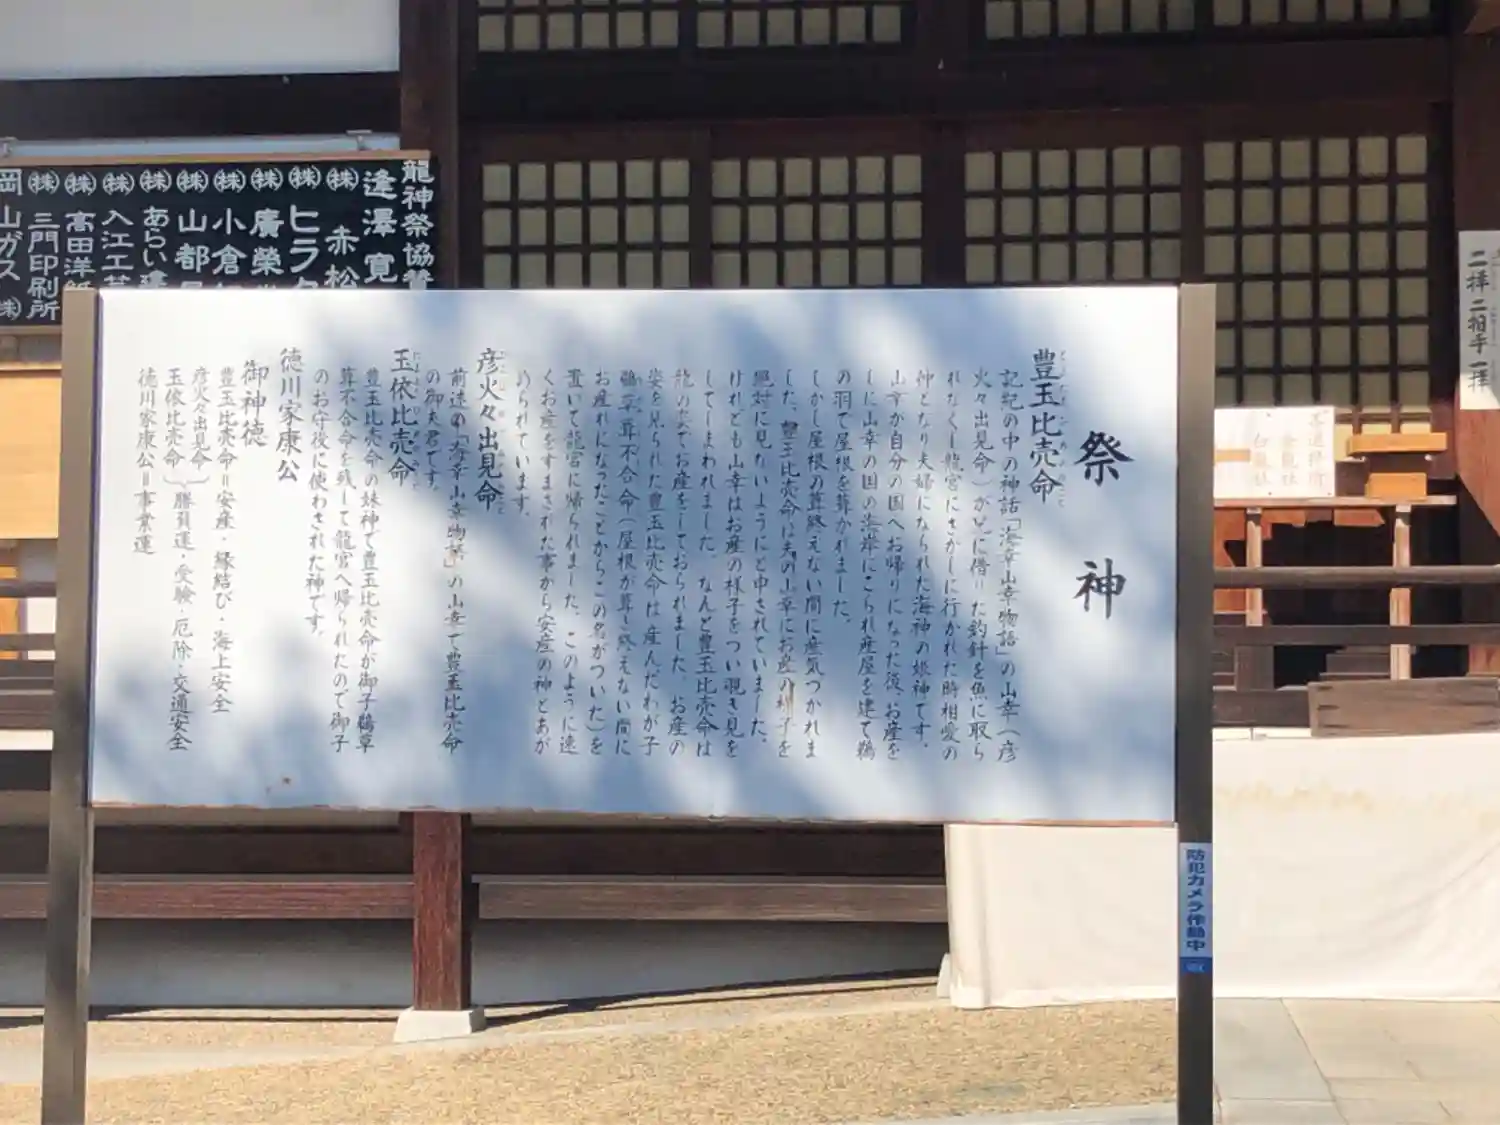 祭神
豊玉比売命
記紀の中の神話「海幸山幸物語」の山幸(彦
火々出見命)が兄に借りた釣針を魚に取ら
れなくし龍宮にさがしに行かれた時相愛の
仲となり夫婦になられた海神の娘神です。
山幸が自分の国へお帰りになった後、お産を
しに山幸の国の海岸にこられ産屋を建て鵜
の羽で屋根を葺かれました。
しかし屋根の葺終えない間に産気つかれま
した。豊玉比売命は夫の山幸にお産の様子を
絶対に見ないようにと申されていました。
けれども山幸はお産の様子をつい覗き見を
してしまわれました。なんと豊玉比売命は
龍の姿でお産をしておられました。お産の
姿を見られた豊玉比売命は産んだわが子
鵜草葺不合命(屋根が葺き終えない間に
お産れになったことからこの名がついた)を
置いて龍宮に帰られました。このように速
くお産をすまされた事から安産の神とあが
められています。
彦火々出見命
前述の「海幸山幸物語」の山幸で豊玉比売命
の御夫君です。
玉依比売命
豊玉比売命の妹神で豊玉比売命が御子鵜草
葺不合命を残して龍宮へ帰られたので御子
のお守役に使わされた神です。
徳川家康公
御神徳
豊玉比売命=安産・縁結び・海上安全
彦火々出見命
玉依比売命}勝負運・受験・厄除・交通安全
徳川家康公=事業運
龍神祭協賛
逢澤寛
㈱赤松
㈱ヒラタ
㈱廣榮
㈱小倉
㈱山都
㈱あらい建
㈱入江工
㈱髙田洋紙
㈱三門印刷所
岡山ガス㈱
二拝二拍手一拝
防犯カメラ作動中